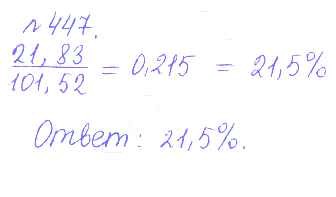 №447.
21,83
101,52 = 0,215 = 21,5%
Ответ: 21,5%.